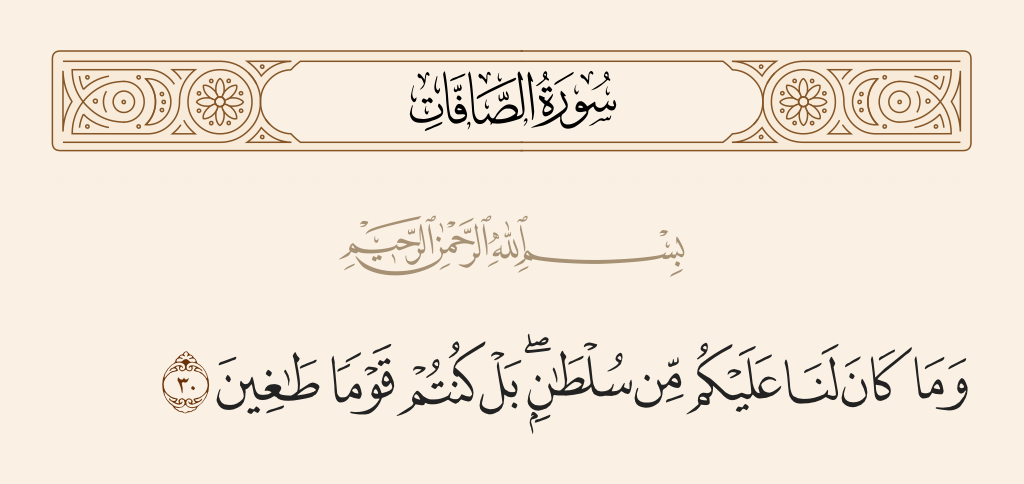 سُورَةُ الصَّافَّاتِ
بِسْمِ ٱللَّهِ ٱلرَّحْمَٰنِ ٱلرَّحِيمِ
وَمَا كَانَ لَنَا عَلَيْكُم مِّن سُلْطَٰنٍۭ ۖ بَلْ كُنتُمْ قَوْمًا طَٰغِينَ ٣٠